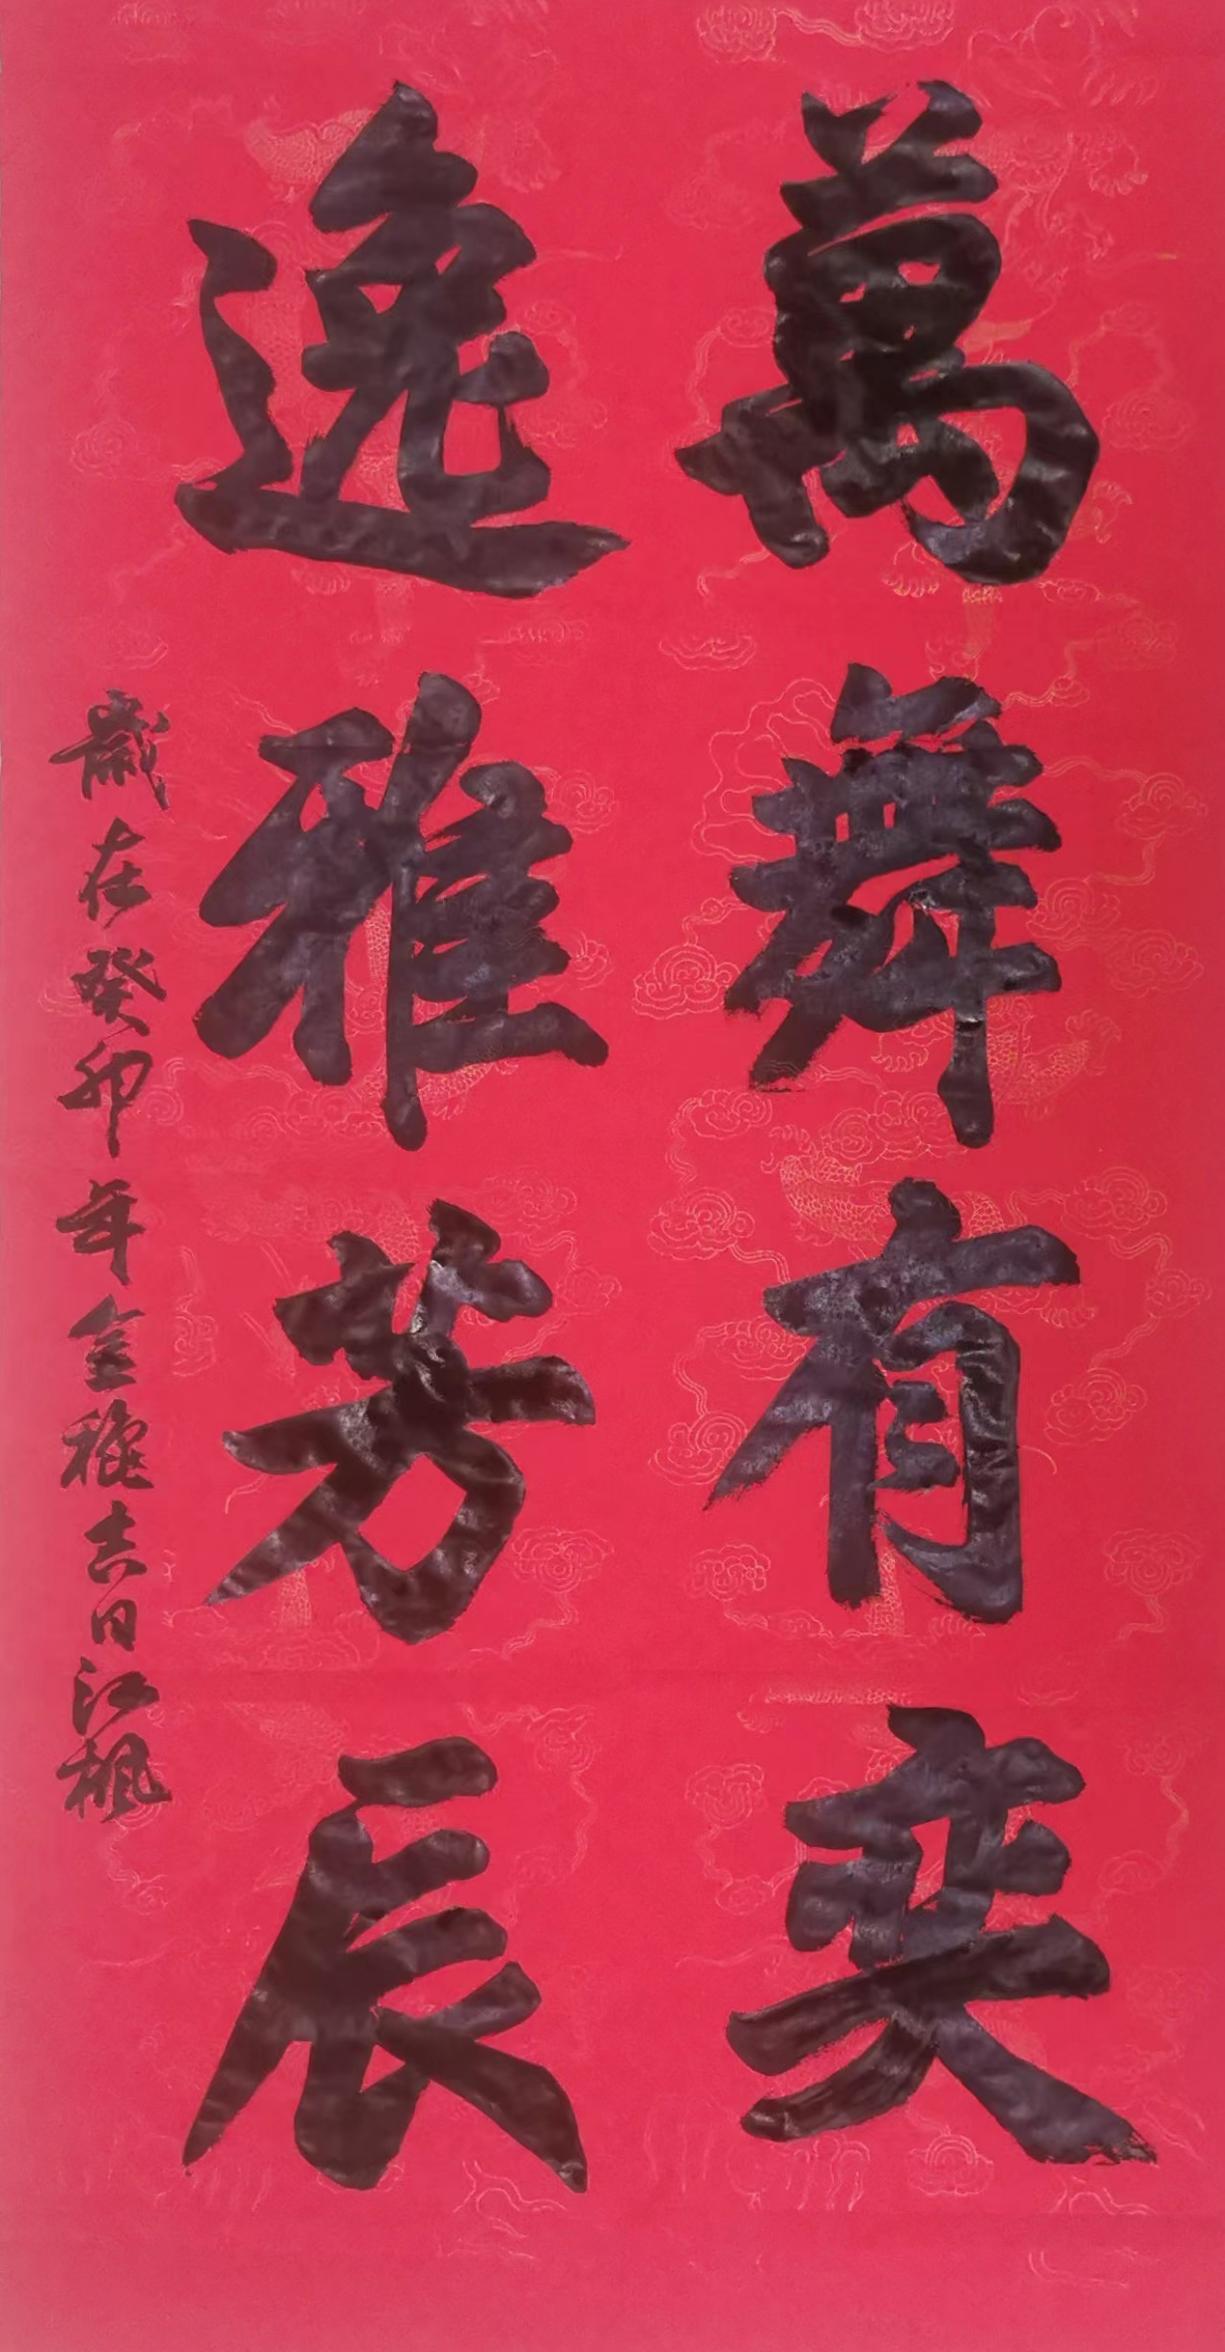 萬舞有奕
逸雅芳辰
歲在癸卯年金穐吉日江楓